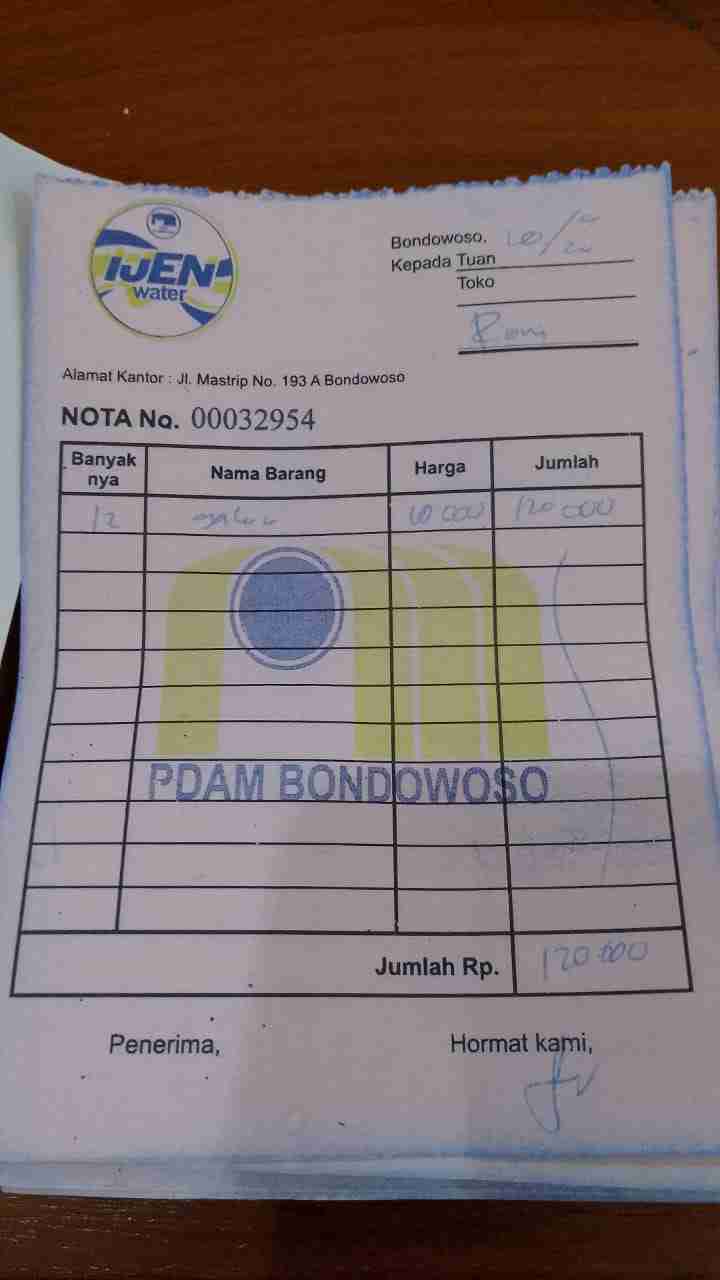 IJEN
water
Bondowoso,
Kepada Tuan
Toko
Alamat Kantor : Jl. Mastrip No. 193 A Bondowoso
NOTA No. 00032954
Banyak nya Nama Barang Harga Jumlah
12 10 000 120 000
PDAM BONDOWOSO
Jumlah Rp. 120.000
Penerima, Hormat kami,